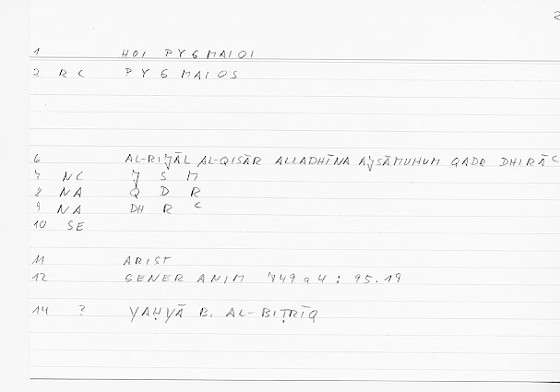 2
1 HOI PYGMAIOI
2 RC PYGMAIOS
6 AL-RIǦĀL AL-QIṢĀR ALLADHĪNA AǦSĀMUHUM QADR DHIRĀC
7 NC Ǧ S M
8 NA Q D R
9 NA DH R C
10 SE
11 ARIST
12 GENER ANIM 749 a 4 : 95.19
14 ? YAḤYĀ B. AL-BIṬRĪQ